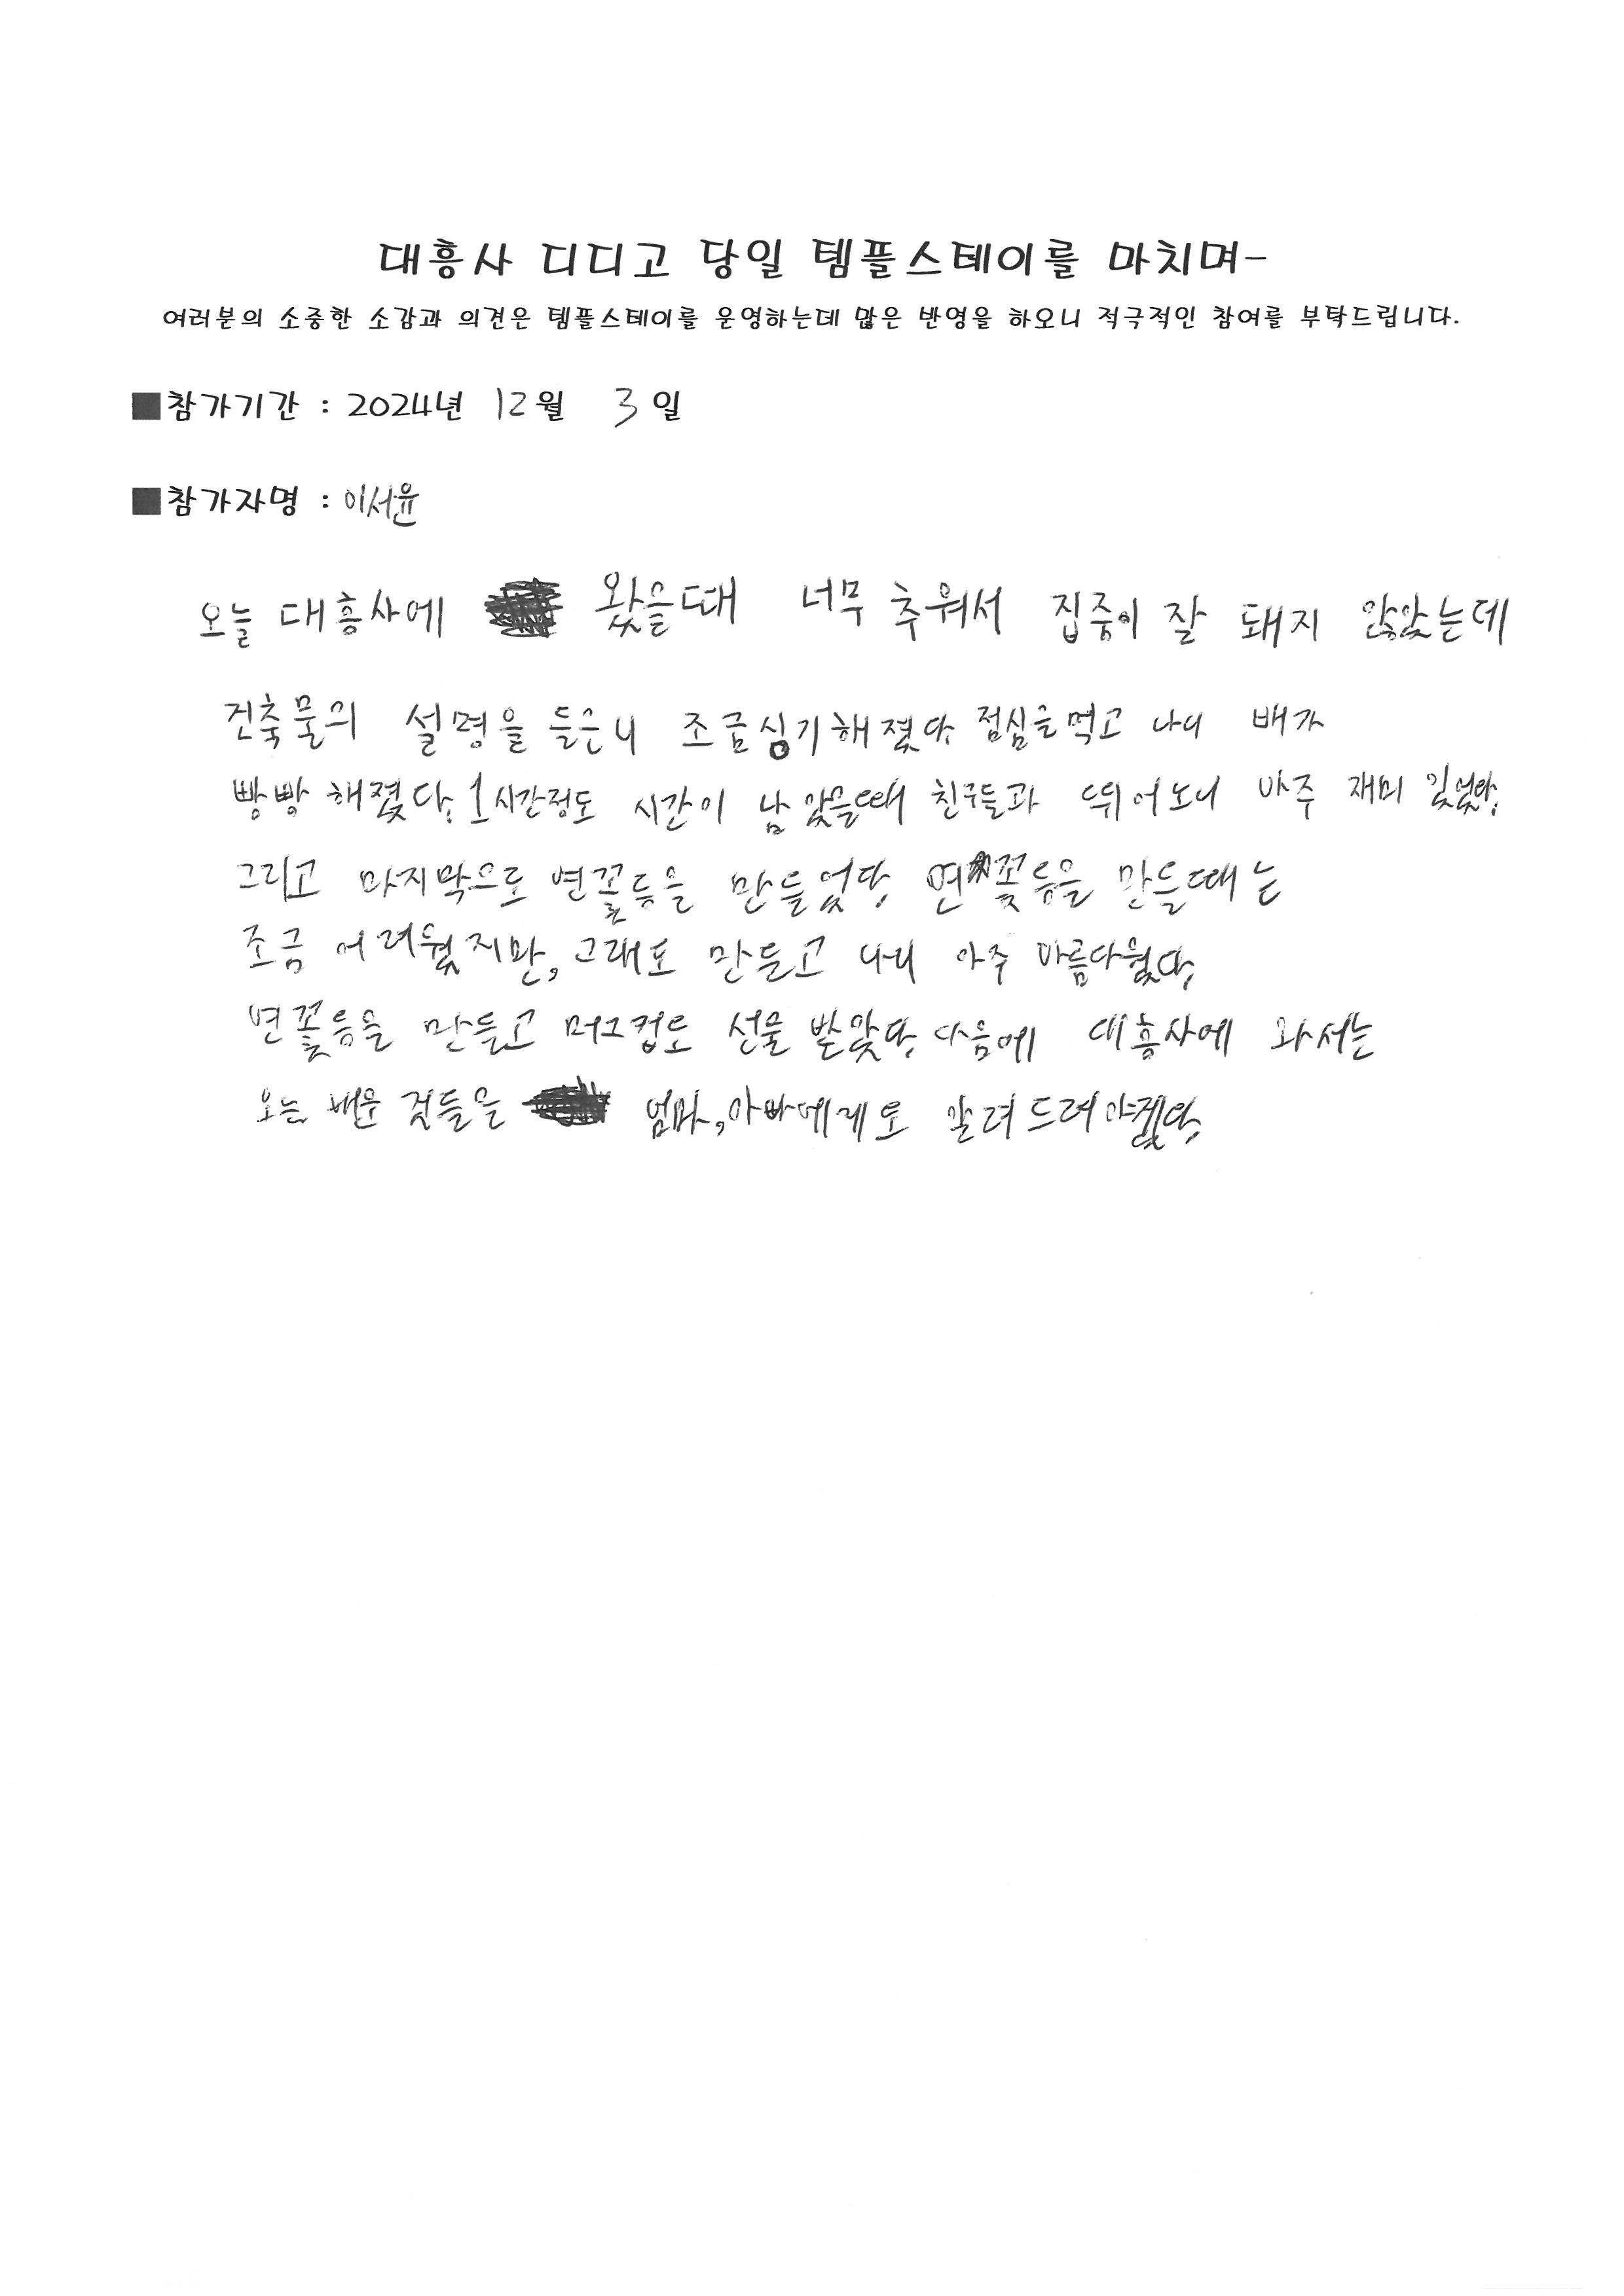 대흥사 디디고 당일 템플스테이를 마치며-
여러분의 소중한 소감과 의견은 템플스테이를 운영하는데 많은 반영을 하오니 적극적인 참여를 부탁드립니다.
■참가기간 : 2024년 12월 3일
■참가자명 : 이서윤
오늘 대흥사에 왔을때 너무 추워서 집중이 잘 돼지 않았는데
건축물의 설명을 들은니 조금싱기해졌다. 점심을먹고 나니 배가
빵빵해졌다. 1시간정도 시간이 남았을때 친구들과 뛰어노니 아주 재미 있었다.
그리고 마지막으로 연꽃등을 만들었다. 연꽃등을 만들때는
조금 어려웠지만, 그래도 만들고 나니 아주 아름다웠다.
연꽃등을 만들고 머그컵도 선물 받았다. 다음에 대흥사에 와서는
오늘 배운 것들을 엄마, 아빠에게도 알려드려야겠다.